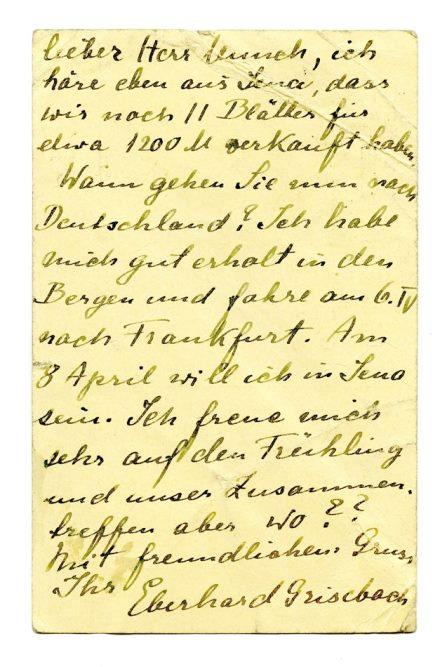 lieber Herr Munch, ich
höre eben aus Jena, dass
wir noch 11 Blätter für
etwa 1200 M verkauft haben.
Wann gehen Sie nun nach
Deutschland? Ich habe
mich gut erholt in den
Bergen und fahre am 6. IV
nach Frankfurt. Am
8 April will ich in Jena
sein. Ich freue mich
sehr auf den Frühling
und unser Zusammen-
treffen aber wo??
Mit freundlichem Gruss
Ihr
Eberhard Grisebach